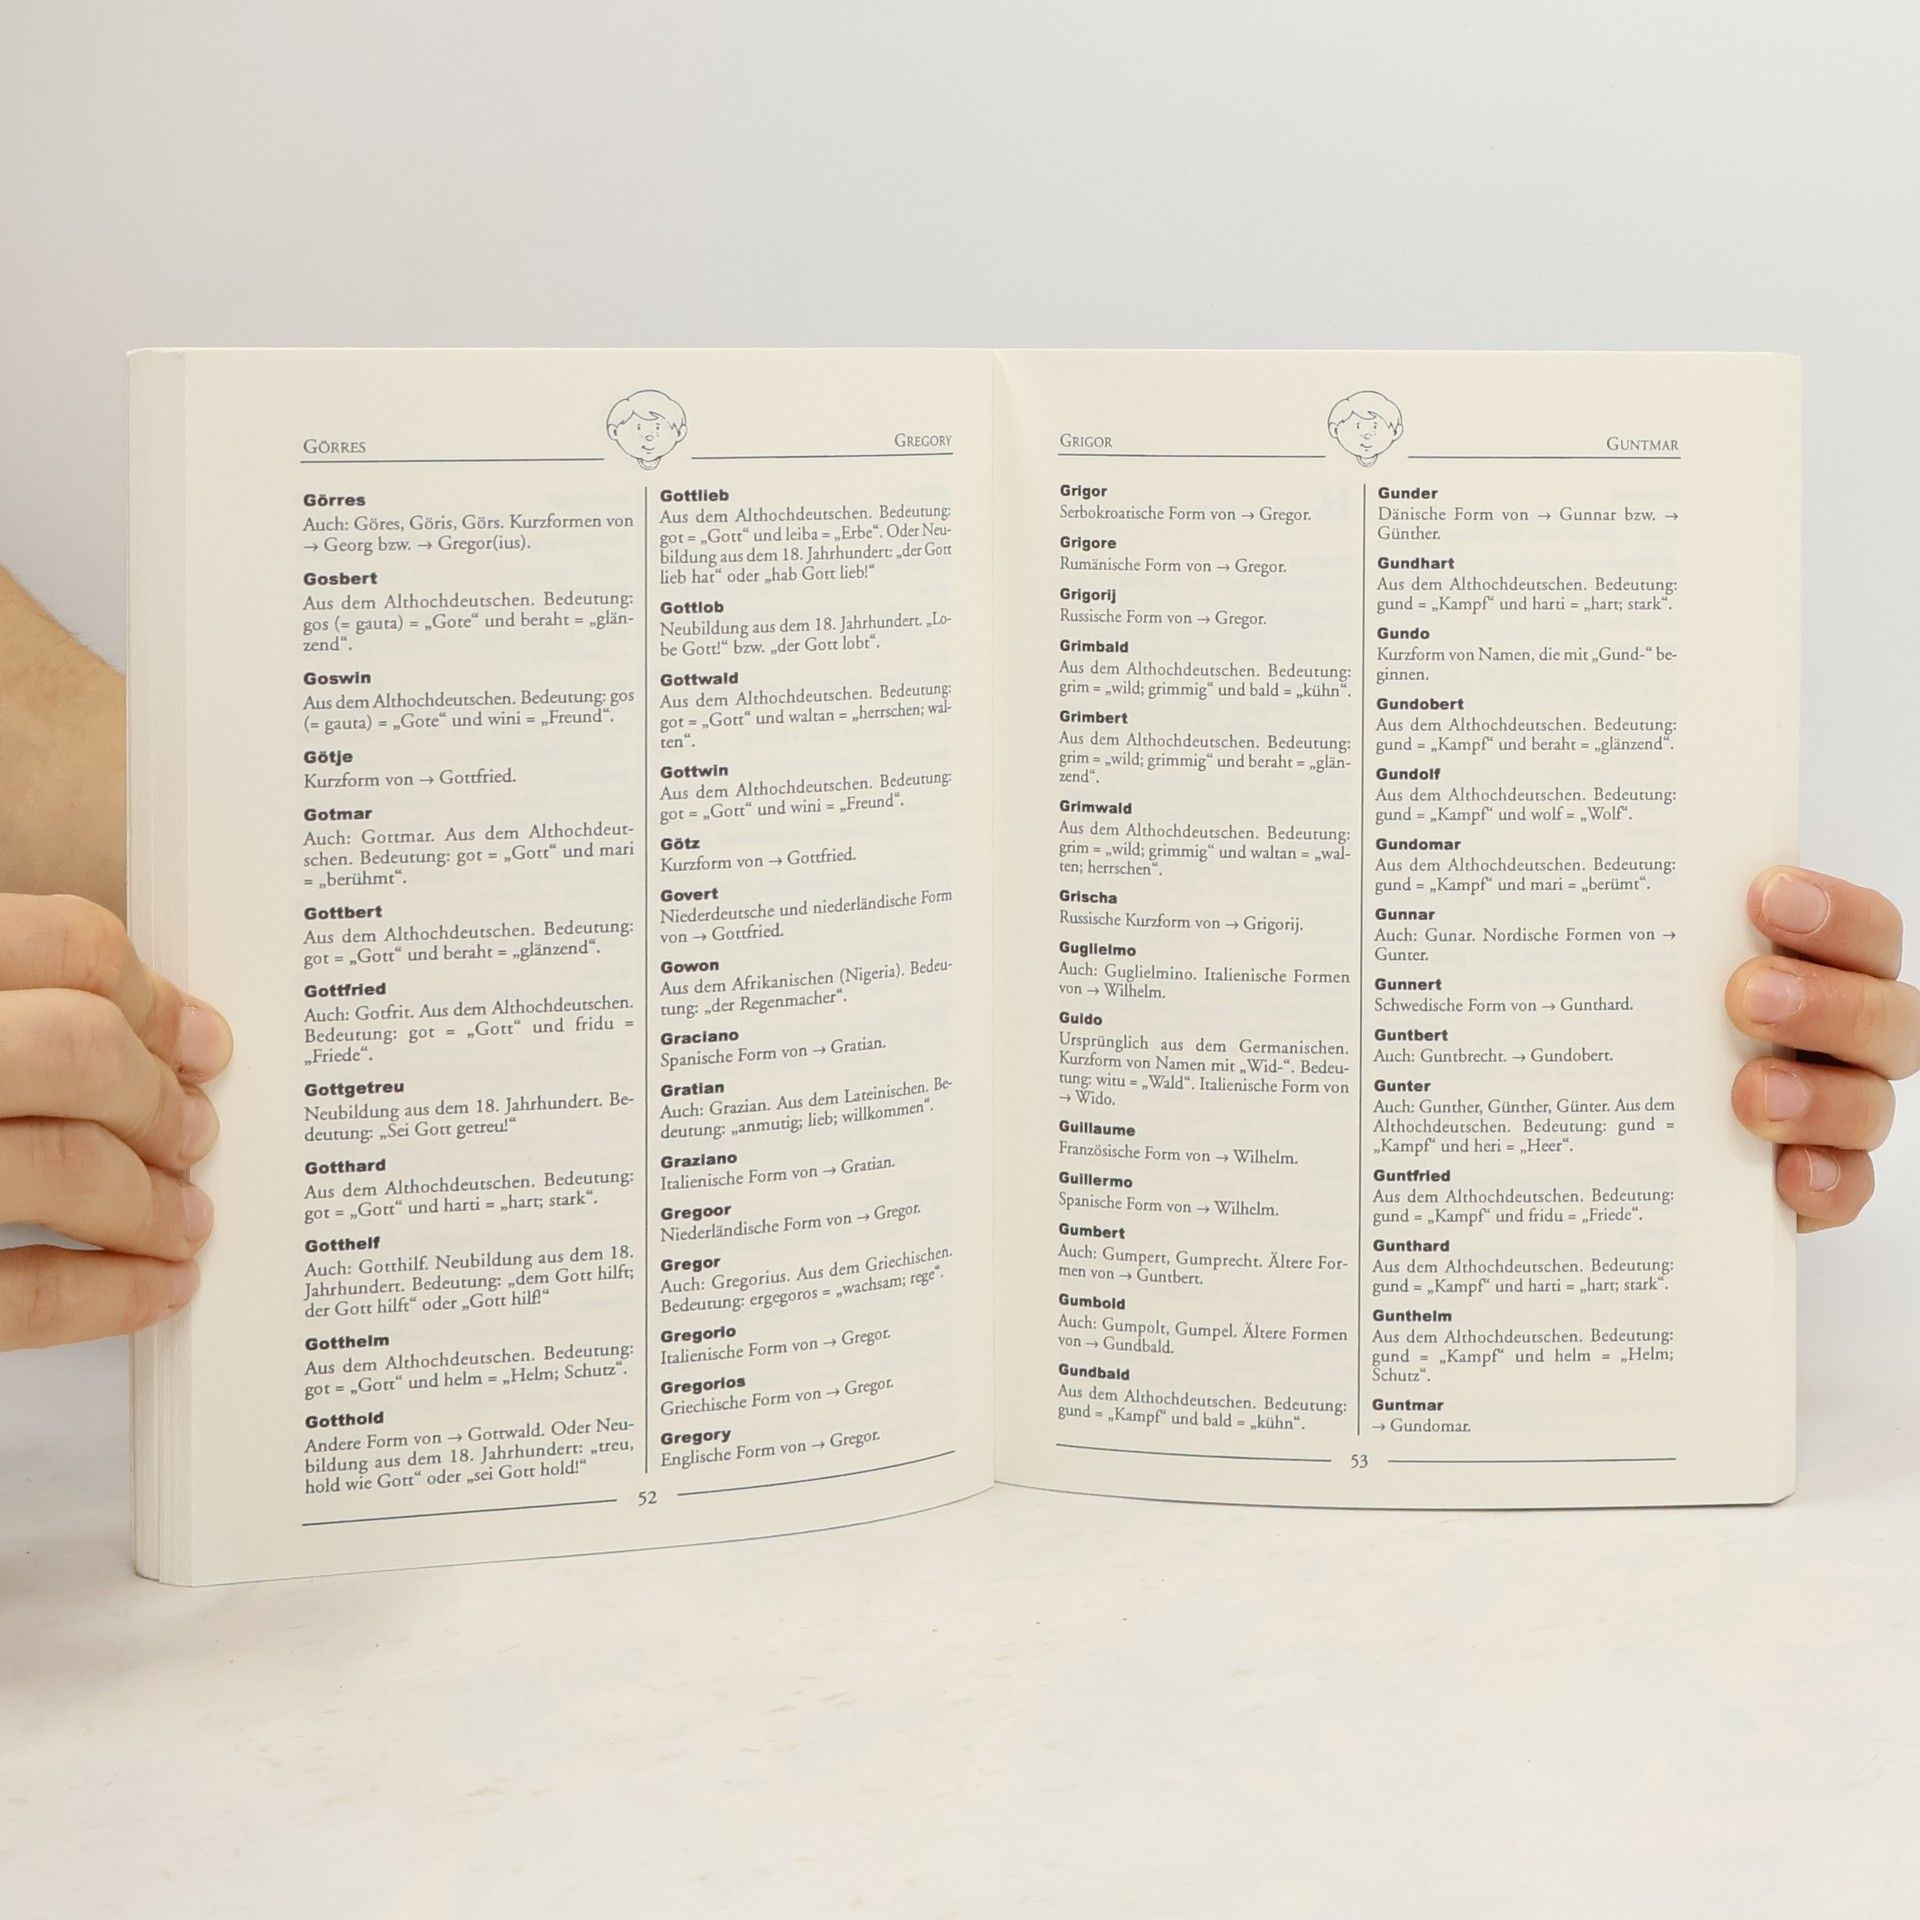 GÖRRES
GREGORY
Görres
Auch: Göres, Göris, Görs. Kurzformen von
→ Georg bzw. → Gregor(ius).
Gosbert
Aus dem Althochdeutschen. Bedeutung:
gos (= gauta) = „Gote“ und beraht = „glän-
zend“.
Goswin
Aus dem Althochdeutschen. Bedeutung: gos
(= gauta) = „Gote“ und wini = „Freund“.
Götje
Kurzform von → Gottfried.
Gotmar
Auch: Gottmar. Aus dem Althochdeut-
schen. Bedeutung: got = „Gott“ und mari
= „berühmt“.
Gottbert
Aus dem Althochdeutschen. Bedeutung:
got = „Gott“ und beraht = „glänzend“.
Gottfried
Auch: Gotfrit. Aus dem Althochdeutschen.
Bedeutung: got = „Gott“ und fridu =
„Friede“.
Gottgetreu
Neubildung aus dem 18. Jahrhundert. Be-
deutung: „Sei Gott getreu!“
Gotthard
Aus dem Althochdeutschen. Bedeutung:
got = „Gott“ und harti = „hart; stark“.
Gotthelf
Auch: Gotthilf. Neubildung aus dem 18.
Jahrhundert. Bedeutung: „dem Gott hilft;
der Gott hilft“ oder „Gott hilf!“
Gotthelm
Aus dem Althochdeutschen. Bedeutung:
got = „Gott“ und helm = „Helm; Schutz“.
Gotthold
Andere Form von → Gottwald. Oder Neu-
bildung aus dem 18. Jahrhundert: „treu,
hold wie Gott“ oder „sei Gott hold!“
Gottlieb
Aus dem Althochdeutschen. Bedeutung:
got = „Gott“ und leiba = „Erbe“. Oder Neu-
bildung aus dem 18. Jahrhundert: „der Gott
lieb hat“ oder „hab Gott lieb!“
Gottlob
Neubildung aus dem 18. Jahrhundert. „Lo-
be Gott!“ bzw. „der Gott lobt“.
Gottwald
Aus dem Althochdeutschen. Bedeutung:
got = „Gott“ und waltan = „herrschen; wal-
ten“.
Gottwin
Aus dem Althochdeutschen. Bedeutung:
got = „Gott“ und wini = „Freund“.
Götz
Kurzform von → Gottfried.
Govert
Niederdeutsche und niederländische Form
von → Gottfried.
Gowon
Aus dem Afrikanischen (Nigeria). Bedeu-
tung: „der Regenmacher“.
Graciano
Spanische Form von → Gratian.
Gratian
Auch: Grazian. Aus dem Lateinischen. Be-
deutung: „anmutig; lieb; willkommen“.
Graziano
Italienische Form von → Gratian.
Gregoor
Niederländische Form von → Gregor.
Gregor
Auch: Gregorius. Aus dem Griechischen.
Bedeutung: ergegoros = „wachsam; rege“.
Gregorio
Italienische Form von → Gregor.
Gregorios
Griechische Form von → Gregor.
Gregory
Englische Form von → Gregor.
52
GRIGOR
GUNTMAR
Grigor
Serbokroatische Form von → Gregor.
Grigore
Rumänische Form von → Gregor.
Grigorij
Russische Form von → Gregor.
Grimbald
Aus dem Althochdeutschen. Bedeutung:
grim = „wild; grimmig“ und bald = „kühn“.
Grimbert
Aus dem Althochdeutschen. Bedeutung:
grim = „wild; grimmig“ und beraht = „glän-
zend“.
Grimwald
Aus dem Althochdeutschen. Bedeutung:
grim = „wild; grimmig“ und waltan = „wal-
ten; herrschen“.
Grischa
Russische Kurzform von → Grigorij.
Guglielmo
Auch: Guglielmino. Italienische Formen
von → Wilhelm.
Guido
Ursprünglich aus dem Germanischen.
Kurzform von Namen mit „Wid-“. Bedeu-
tung: witu = „Wald“. Italienische Form von
→ Wido.
Guillaume
Französische Form von → Wilhelm.
Guillermo
Spanische Form von → Wilhelm.
Gumbert
Auch: Gumpert, Gumprecht. Ältere For-
men von → Guntbert.
Gumbold
Auch: Gumpolt, Gumpel. Ältere Formen
von → Gundbald.
Gundbald
Aus dem Althochdeutschen. Bedeutung:
gund = „Kampf“ und bald = „kühn“.
Gunder
Dänische Form von → Gunnar bzw. →
Günther.
Gundhart
Aus dem Althochdeutschen. Bedeutung:
gund = „Kampf“ und harti = „hart; stark“.
Gundo
Kurzform von Namen, die mit „Gund-“ be-
ginnen.
Gundobert
Aus dem Althochdeutschen. Bedeutung:
gund = „Kampf“ und beraht = „glänzend“.
Gundolf
Aus dem Althochdeutschen. Bedeutung:
gund = „Kampf“ und wolf = „Wolf“.
Gundomar
Aus dem Althochdeutschen. Bedeutung:
gund = „Kampf“ und mari = „berümt“.
Gunnar
Auch: Gunar. Nordische Formen von →
Gunter.
Gunnert
Schwedische Form von → Gunthard.
Guntbert
Auch: Guntbrecht. → Gundobert.
Gunter
Auch: Gunther, Günther, Günter. Aus dem
Althochdeutschen. Bedeutung: gund =
„Kampf“ und heri = „Heer“.
Guntfried
Aus dem Althochdeutschen. Bedeutung:
gund = „Kampf“ und fridu = „Friede“.
Gunthard
Aus dem Althochdeutschen. Bedeutung:
gund = „Kampf“ und harti = „hart; stark“.
Gunthelm
Aus dem Althochdeutschen. Bedeutung:
gund = „Kampf“ und helm = „Helm;
Schutz“.
Guntmar
→ Gundomar.
53